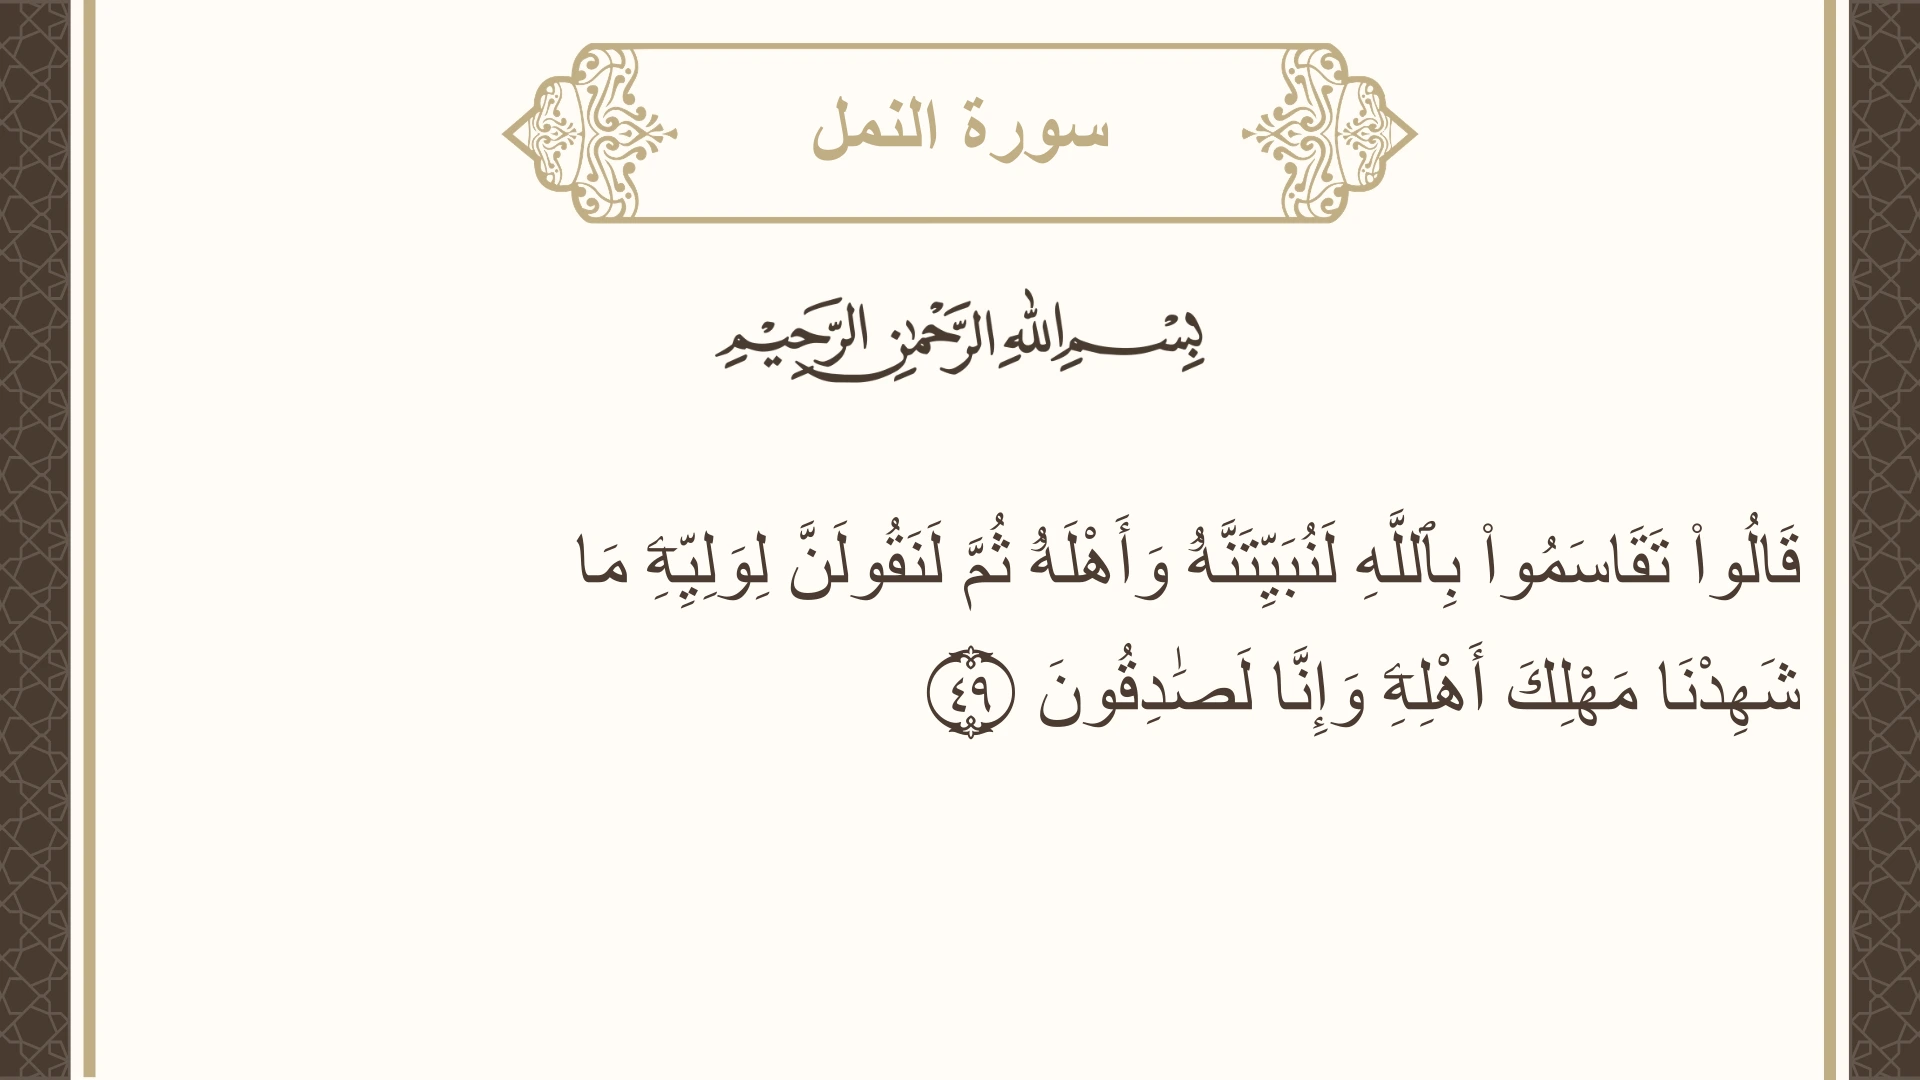 سورة النمل
بِسْمِ اللهِ الرَّحْمٰنِ الرَّحِيْمِ
قَالُوا۟ تَقَاسَمُوا۟ بِٱللَّهِ لَنُبَيِّتَنَّهُۥ وَأَهْلَهُۥ ثُمَّ لَنَقُولَنَّ لِوَلِيِّهِۦ مَا
شَهِدْنَا مَهْلِكَ أَهْلِهِۦ وَإِنَّا لَصَٰدِقُونَ ٤٩